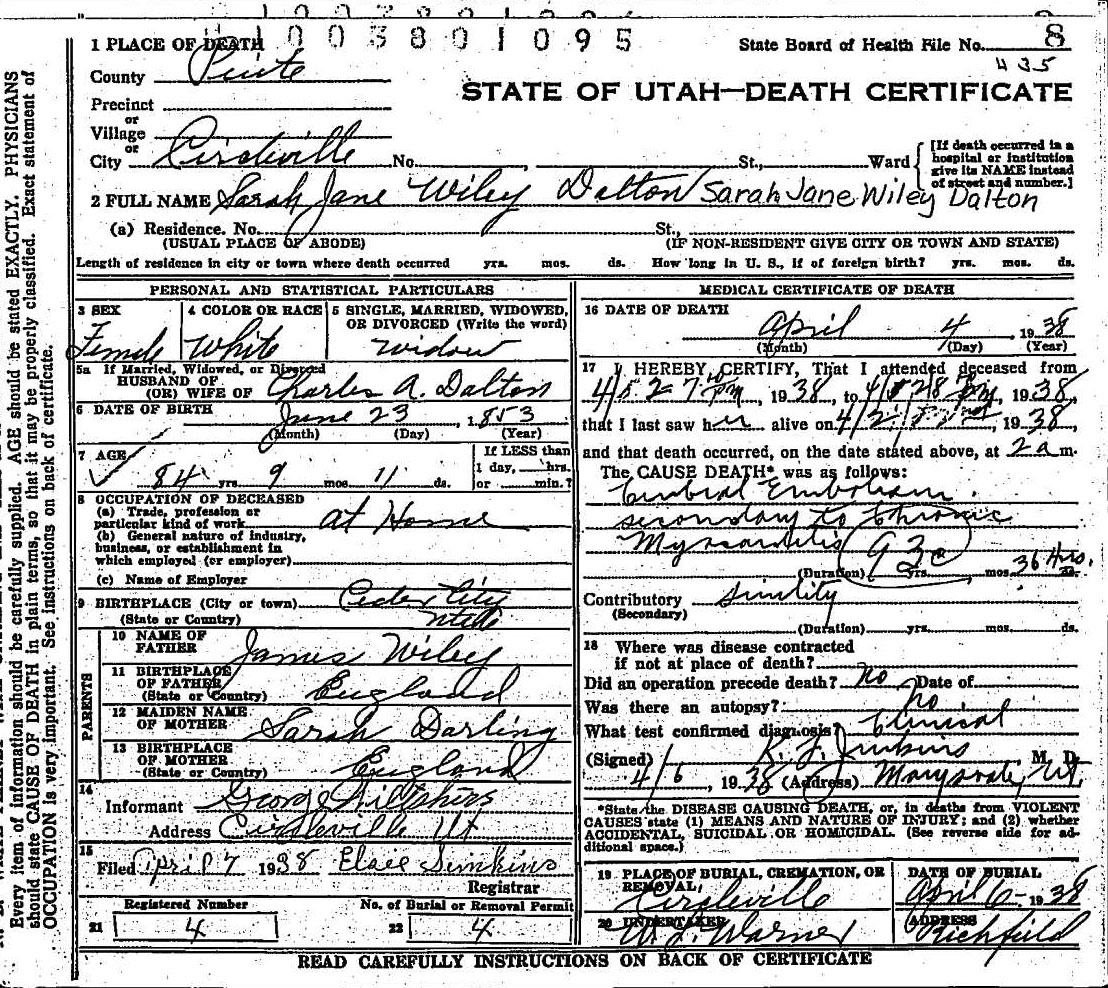 1003801095
1 PLACE OF DEATH
State Board of Health File No. 8
435
County Piute
STATE OF UTAH—DEATH CERTIFICATE
Precinct
or
Village
or
City Circleville No. St., Ward
[If death occurred in a hospital or institution give its NAME instead of street and number.]
2 FULL NAME Sarah Jane Wiley Dalton Sarah Jane Wiley Dalton
(a) Residence. No. St.,
(USUAL PLACE OF ABODE) (IF NON-RESIDENT GIVE CITY OR TOWN AND STATE)
Length of residence in city or town where death occurred yrs. mos. ds. How long in U. S., if of foreign birth? yrs. mos. ds.
PERSONAL AND STATISTICAL PARTICULARS
3 SEX 4 COLOR OR RACE 5 SINGLE, MARRIED, WIDOWED,
OR DIVORCED (Write the word)
Female White Widow
5a If Married, Widowed, or Divorced
HUSBAND OF
(OR) WIFE OF Charles A. Dalton
6 DATE OF BIRTH June 23, 1853
(Month) (Day) (Year)
7 AGE If LESS than
1 day, hrs.
84 yrs. 9 mos. 11 ds. or min.?
8 OCCUPATION OF DECEASED
(a) Trade, profession or
particular kind of work At Home
(b) General nature of industry,
business, or establishment in
which employed (or employer)
(c) Name of Employer
9 BIRTHPLACE (City or town) Cedar City
(State or Country) Utah
PARENTS
10 NAME OF
FATHER James Wiley
11 BIRTHPLACE
OF FATHER
(State or Country) England
12 MAIDEN NAME
OF MOTHER Sarah Darling
13 BIRTHPLACE
OF MOTHER
(State or Country) England
14
Informant George
Address Circleville Ut
15
Filed April 7 1938 Elsie Simkins
Registrar
Registered Number No. of Burial or Removal Permit
21 4 22 4
MEDICAL CERTIFICATE OF DEATH
16 DATE OF DEATH
April 4 1938
(Month) (Day) (Year)
17 I HEREBY CERTIFY, That I attended deceased from
1938 to 1938
that I last saw her alive on 1938
and that death occurred, on the date stated above, at 2 a m.
The CAUSE DEATH* was as follows:
Cerebral Embolism
secondary to Chronic
93c
(Duration) yrs. mos. 36 Hrs. ds.
Contributory
(Secondary)
(Duration) yrs. mos. ds.
18 Where was disease contracted
if not at place of death?
Did an operation precede death? No Date of
Was there an autopsy? No
What test confirmed diagnosis? Clinical
(Signed) Jenkins M. D.
4/6, 1938 (Address) Marysvale, Ut.
*State the DISEASE CAUSING DEATH, or, in deaths from VIOLENT
CAUSES state (1) MEANS AND NATURE OF INJURY; and (2) whether
ACCIDENTAL, SUICIDAL OR HOMICIDAL. (See reverse side for ad-
ditional space.)
19 PLACE OF BURIAL, CREMATION, OR DATE OF BURIAL
REMOVAL,
Circleville April 6 1938
20 UNDERTAKER ADDRESS
Warner Richfield
READ CAREFULLY INSTRUCTIONS ON BACK OF CERTIFICATE
Every item of information should be carefully supplied. AGE should be stated EXACTLY. PHYSICIANS
should state CAUSE OF DEATH in plain terms, so that it may be properly classified. Exact statement of
OCCUPATION is very important. See instructions on back of certificate.